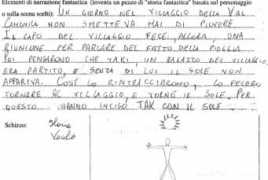 Elementi di narrazione fantastica (inventa un pezzo di "storia fantastica" basata sul personaggio
o sulla scena scelti):
UN GIORNO NEL VILLAGGIO DELLA VAL
CAMONICA NON SMETTEVA MAI DI PIOVERE.
IL CAPO DEL VILLAGGIO FECE, ALLORA, UNA
RIUNIONE PER PARLARE DEL FATTO DELLA PIOGGIA.
POI PENSARONO CHE TAKI, UN RAGAZZO DEL VILLAGGIO,
ERA PARTITO, E SENZA DI LUI IL SOLE NON
APPARIVA. COSÌ LO RINTRACCIARONO, LO FECERO
TORNARE AL VILLAGGIO E TORNÒ IL SOLE. PER
QUESTO HANNO INCISO TAK CON IL SOLE
Schizzo: